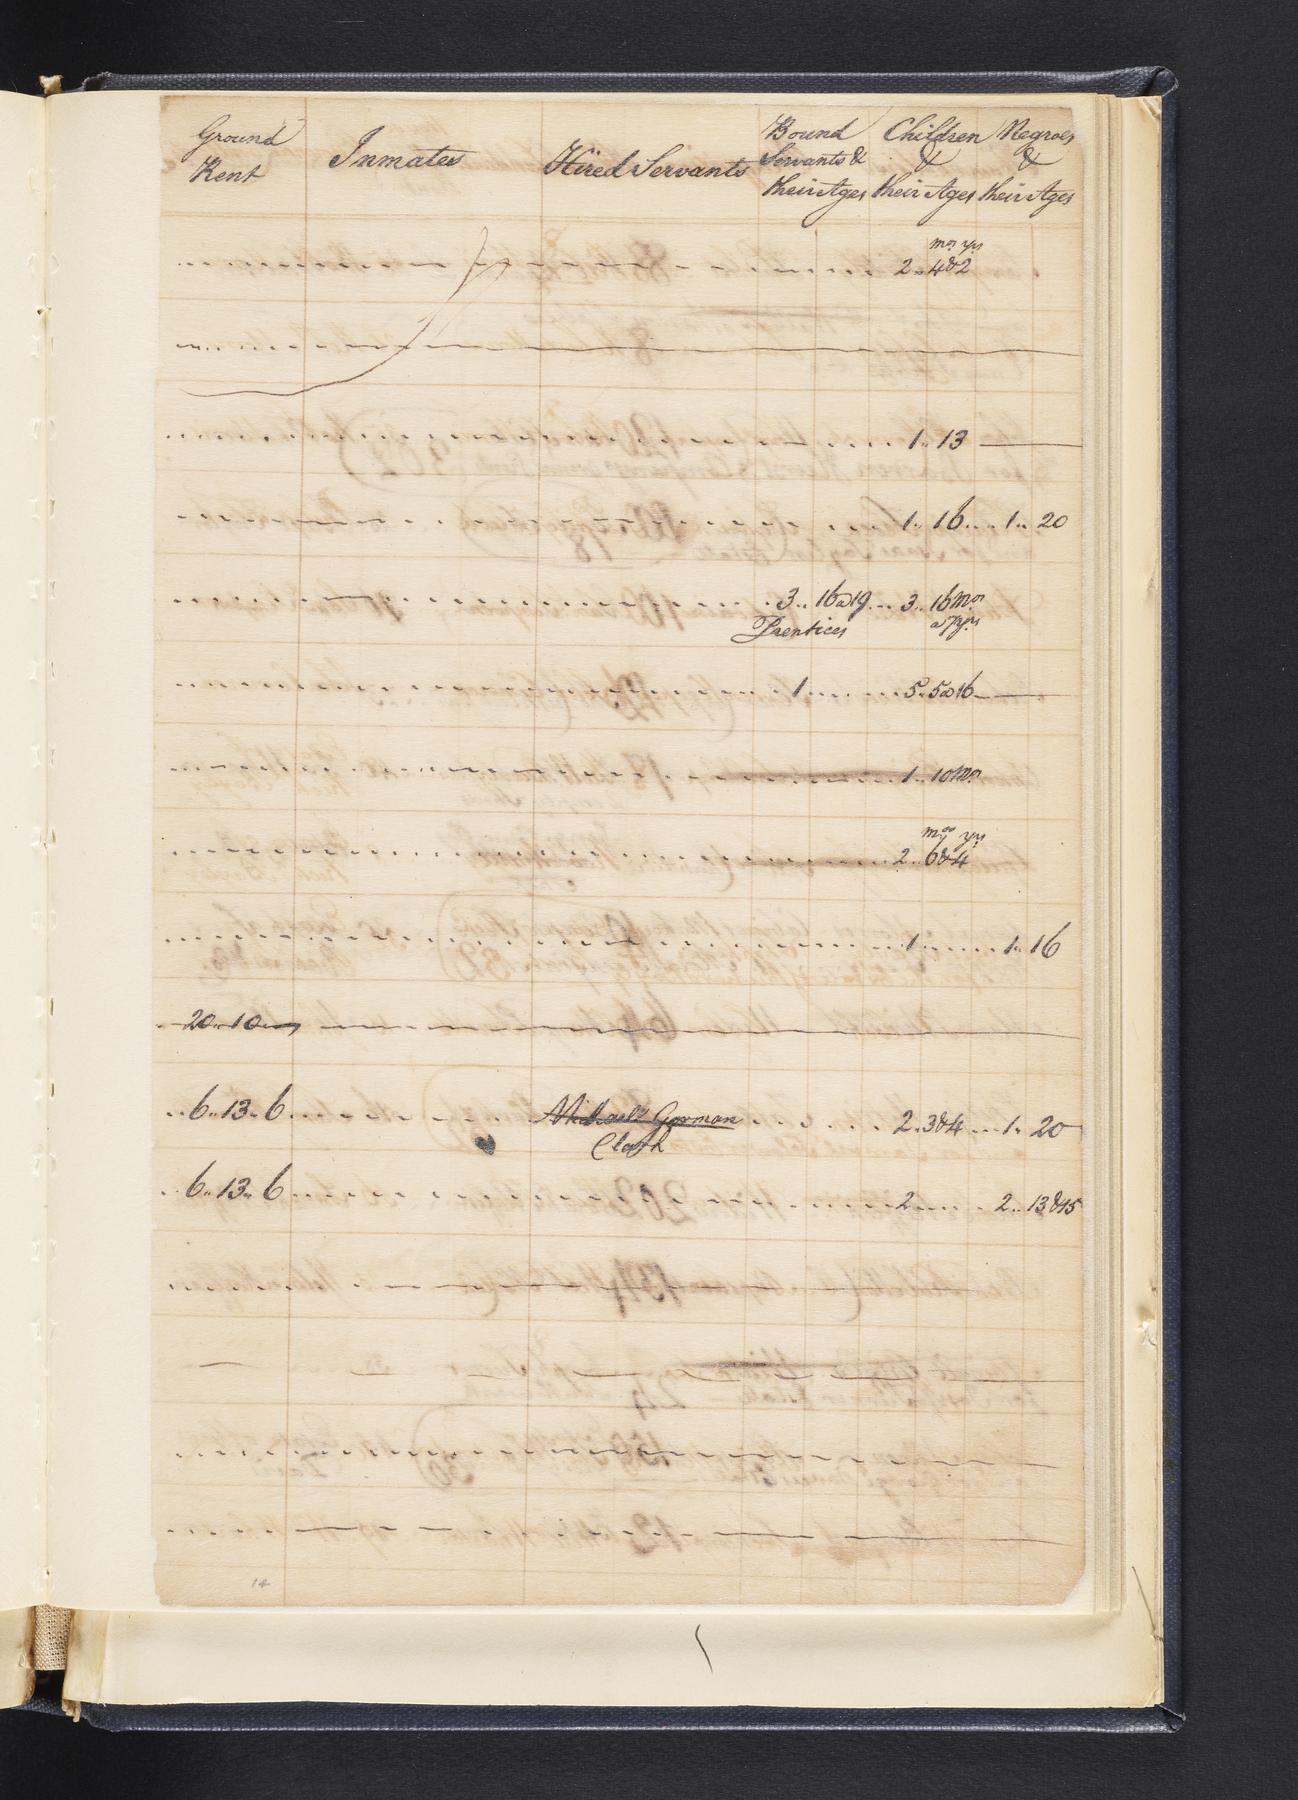 Ground Rent | Inmates | Hired Servants | Bound Servants & their Ages | Children & their Ages | Negroes & their Ages
mos yrs
2 .. 4 & 2
1 .. 13
1 .. 16 .... 1 .. 20
3 .. 16 a 19 ... 3 .. 16 Mos
Prentices a 7 yrs
1 ...... 5 .. 5 a 16
1 .. 10 Mos
mos yrs
2 .. 6 & 4
1 ...... 1 .. 16
20 .. 10
6 .. 13 .. 6 Michael Gorman 2 .. 3 & 4 ... 1 .. 20
Clark
6 .. 13 .. 6 2 ..... 2 .. 13 & 15
14